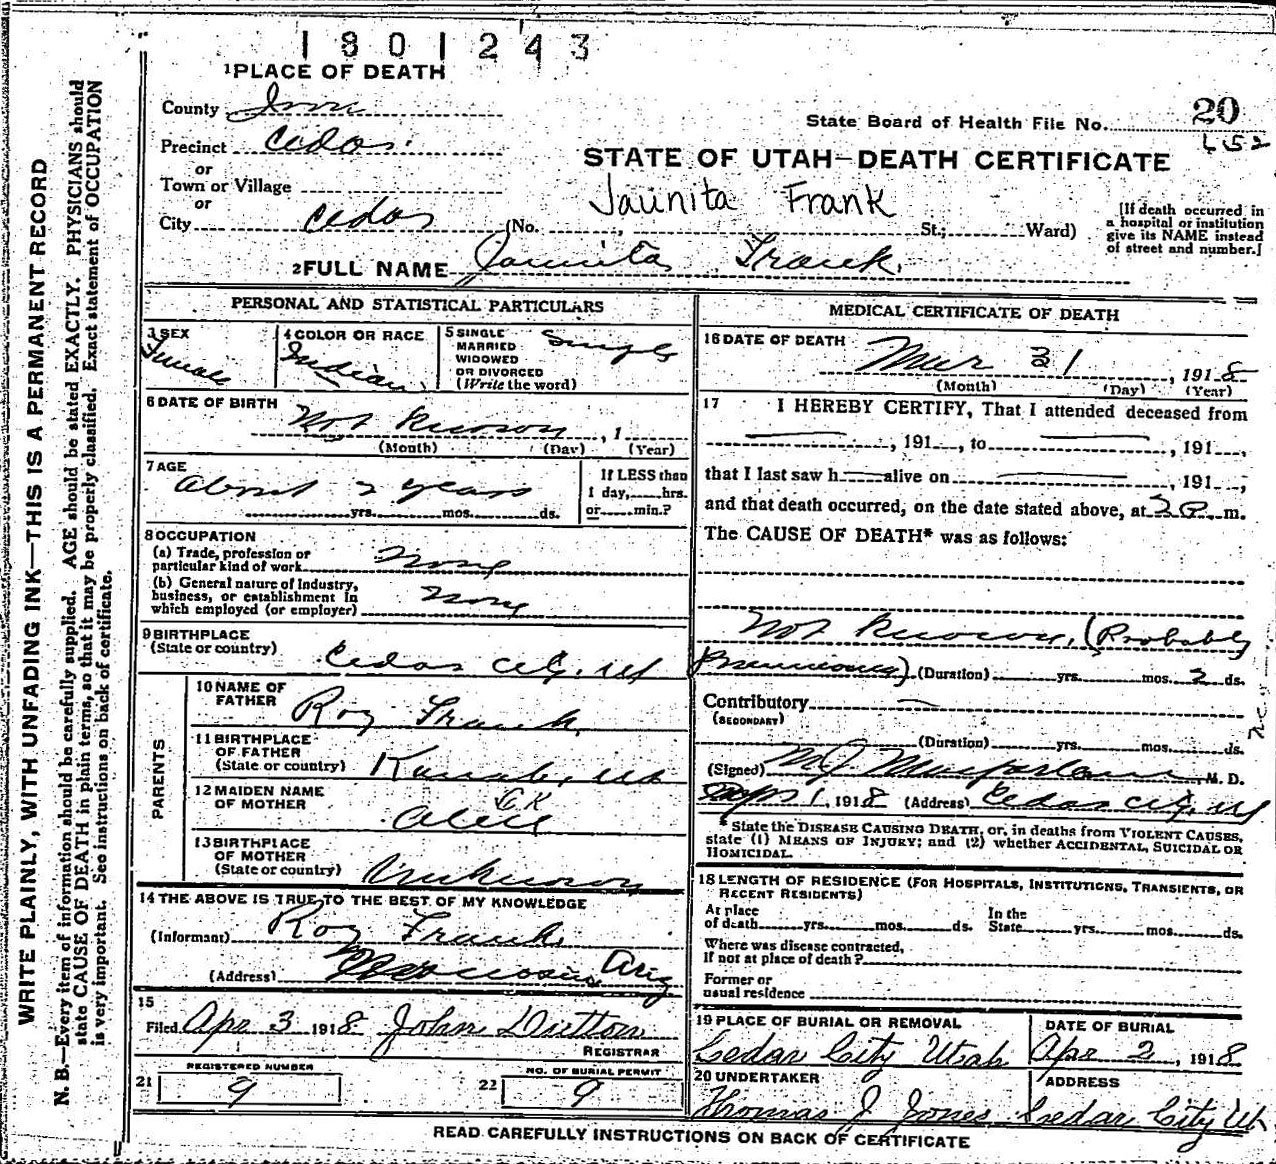 1801243
1 PLACE OF DEATH
County Iron
State Board of Health File No. 20
652
Precinct Cedar
or
Town or Village
or
STATE OF UTAH—DEATH CERTIFICATE
Jaunita Frank
City Cedar (No. St.; Ward)
[If death occurred in a hospital or institution give its NAME instead of street and number.]
2 FULL NAME Jaunita Frank.
PERSONAL AND STATISTICAL PARTICULARS
3 SEX Female
4 COLOR OR RACE Indian
5 SINGLE MARRIED WIDOWED OR DIVORCED (Write the word) Single
6 DATE OF BIRTH Not Known, 1
(Month) (Day) (Year)
7 AGE About 2 years
yrs. mos. ds.
If LESS than 1 day, hrs. or min.?
8 OCCUPATION
(a) Trade, profession or particular kind of work None
(b) General nature of Industry, business, or establishment in which employed (or employer) None
9 BIRTHPLACE (State or country) Cedar City, Ut
PARENTS
10 NAME OF FATHER Roy Frank
11 BIRTHPLACE OF FATHER (State or country) Kanab, Ut
12 MAIDEN NAME OF MOTHER
13 BIRTHPLACE OF MOTHER (State or country) Unknown
14 THE ABOVE IS TRUE TO THE BEST OF MY KNOWLEDGE
(Informant) Roy Frank
(Address) Ariz
15 Filed Apr 3 1918 John Dutton
REGISTRAR
21 REGISTERED NUMBER 9
22 NO. OF BURIAL PERMIT 9
MEDICAL CERTIFICATE OF DEATH
16 DATE OF DEATH Mar 31, 1918
(Month) (Day) (Year)
17 I HEREBY CERTIFY, That I attended deceased from
, 191 , to , 191 ,
that I last saw h alive on , 191 ,
and that death occurred, on the date stated above, at 2 P m.
The CAUSE OF DEATH* was as follows:
Not Known, (Probably
Pneumonia) (Duration) yrs. mos. 2 ds.
Contributory
(SECONDARY)
(Duration) yrs. mos. ds.
(Signed) M J Macfarlane, M. D.
Apr 1, 1918 (Address) Cedar City, Ut
State the DISEASE CAUSING DEATH, or, in deaths from VIOLENT CAUSES, state (1) MEANS OF INJURY; and (2) whether ACCIDENTAL, SUICIDAL OR HOMICIDAL.
18 LENGTH OF RESIDENCE (FOR HOSPITALS, INSTITUTIONS, TRANSIENTS, OR RECENT RESIDENTS)
At place of death yrs. mos. ds. In the State yrs. mos. ds.
Where was disease contracted, If not at place of death?
Former or usual residence
19 PLACE OF BURIAL OR REMOVAL Cedar City Utah
DATE OF BURIAL Apr 2, 1918
20 UNDERTAKER Thomas J Jones
ADDRESS Cedar City Ut
READ CAREFULLY INSTRUCTIONS ON BACK OF CERTIFICATE
WRITE PLAINLY, WITH UNFADING INK—THIS IS A PERMANENT RECORD
N. B.—Every item of information should be carefully supplied. AGE should be stated EXACTLY. PHYSICIANS should
state CAUSE OF DEATH in plain terms, so that it may be properly classified. Exact statement of OCCUPATION
is very important. See instructions on back of certificate.